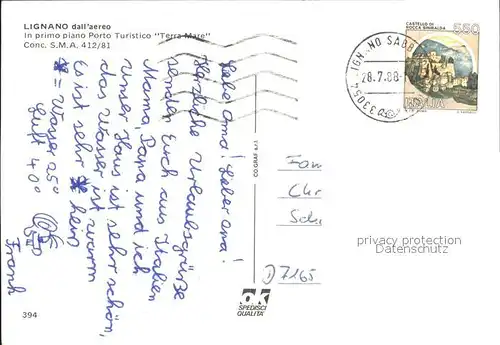 LIGNANO dall'aereo
In primo piano Porto Turistico "Terra Mare"
Conc. S.M.A. 412/81
Liebe Oma! Lieber Opa!
Herzliche Urlaubsgrüsse
senden Euch aus Italien
Mama, Papa und ich
Unser Haus ist sehr schön,
das Wasser ist warm
es ist sehr heiß
= Wasser 25°
Luft 40°
Frank
CASTELLO DI
ROCCA SINIBALDA
550
ITALIA
33054 LIGNANO SABB
28.7.88
Fam
Chr
Sch
D 7165
privacy protection
Datenschutz
CO.GRAF
ak
SPEDISCI
QUALITÀ
394